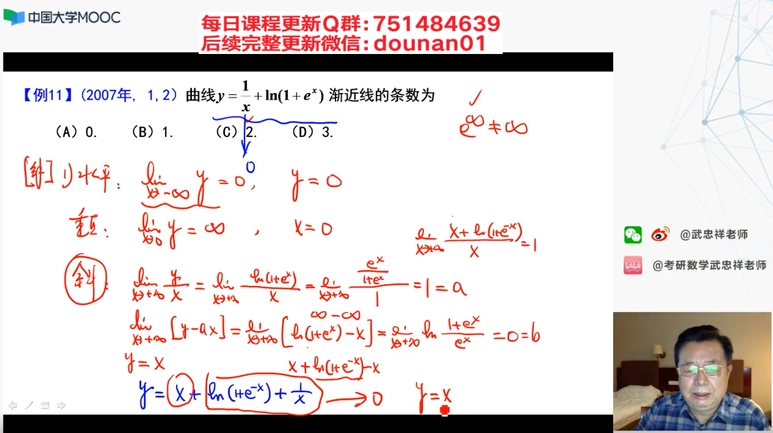 中国大学MOOC
每日课程更新Q群:751484639
后续完整更新微信:dounan01
【例11】(2007年, 1, 2) 曲线 y = 1/x + ln(1+e^x) 渐近线的条数为
(A) 0. (B) 1. (C) 2. (D) 3.
✓
e^∞ ≠ ∞
0
[解] 1) 水平: lim x→-∞ y = 0, y = 0
垂直: lim x→0 y = ∞, x = 0
lim x→+∞ (x + ln(1+e^-x))/x = 1
斜: lim x→+∞ y/x = lim x→+∞ ln(1+e^x)/x = lim x→+∞ (e^x/(1+e^x))/1 = 1 = a
∞-∞
lim x→+∞ [y-ax] = lim x→+∞ [ln(1+e^x)-x] = lim x→+∞ ln (1+e^x)/e^x = 0 = b
y = x x + ln(1+e^-x) - x
y = x + ln(1+e^-x) + 1/x → 0 y = x
@武忠祥老师
@考研数学武忠祥老师